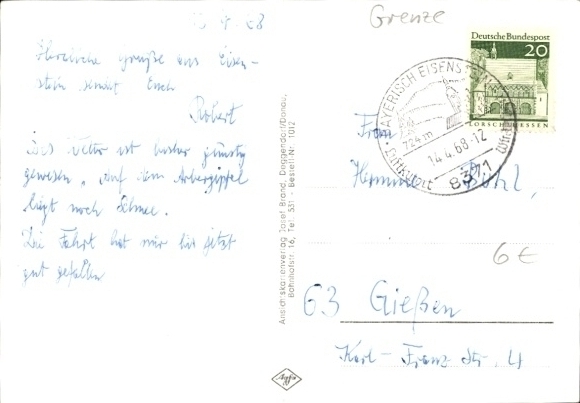 Grenze
13.4.68
Herzliche Grüße aus Eisen-
stein sendet Euch
Robert
Das Wetter ist bisher günstig
gewesen, auf dem Arbergipfel
liegt noch Schnee.
Die Fahrt hat mir bis jetzt
gut gefallen
Ansichtskartenverlag Josef Brand, Deggendorf/Donau,
Bahnhofstr. 16, Tel. 531 - Bestell-Nr. 1012
Agfa
Deutsche Bundespost
20
LORSCH/HESSEN
BAYERISCH EISENSTEIN
724 m
14.4.68-12
Luftkurort
8371
6 €
63 Gießen
Karl-Franz Str. 4